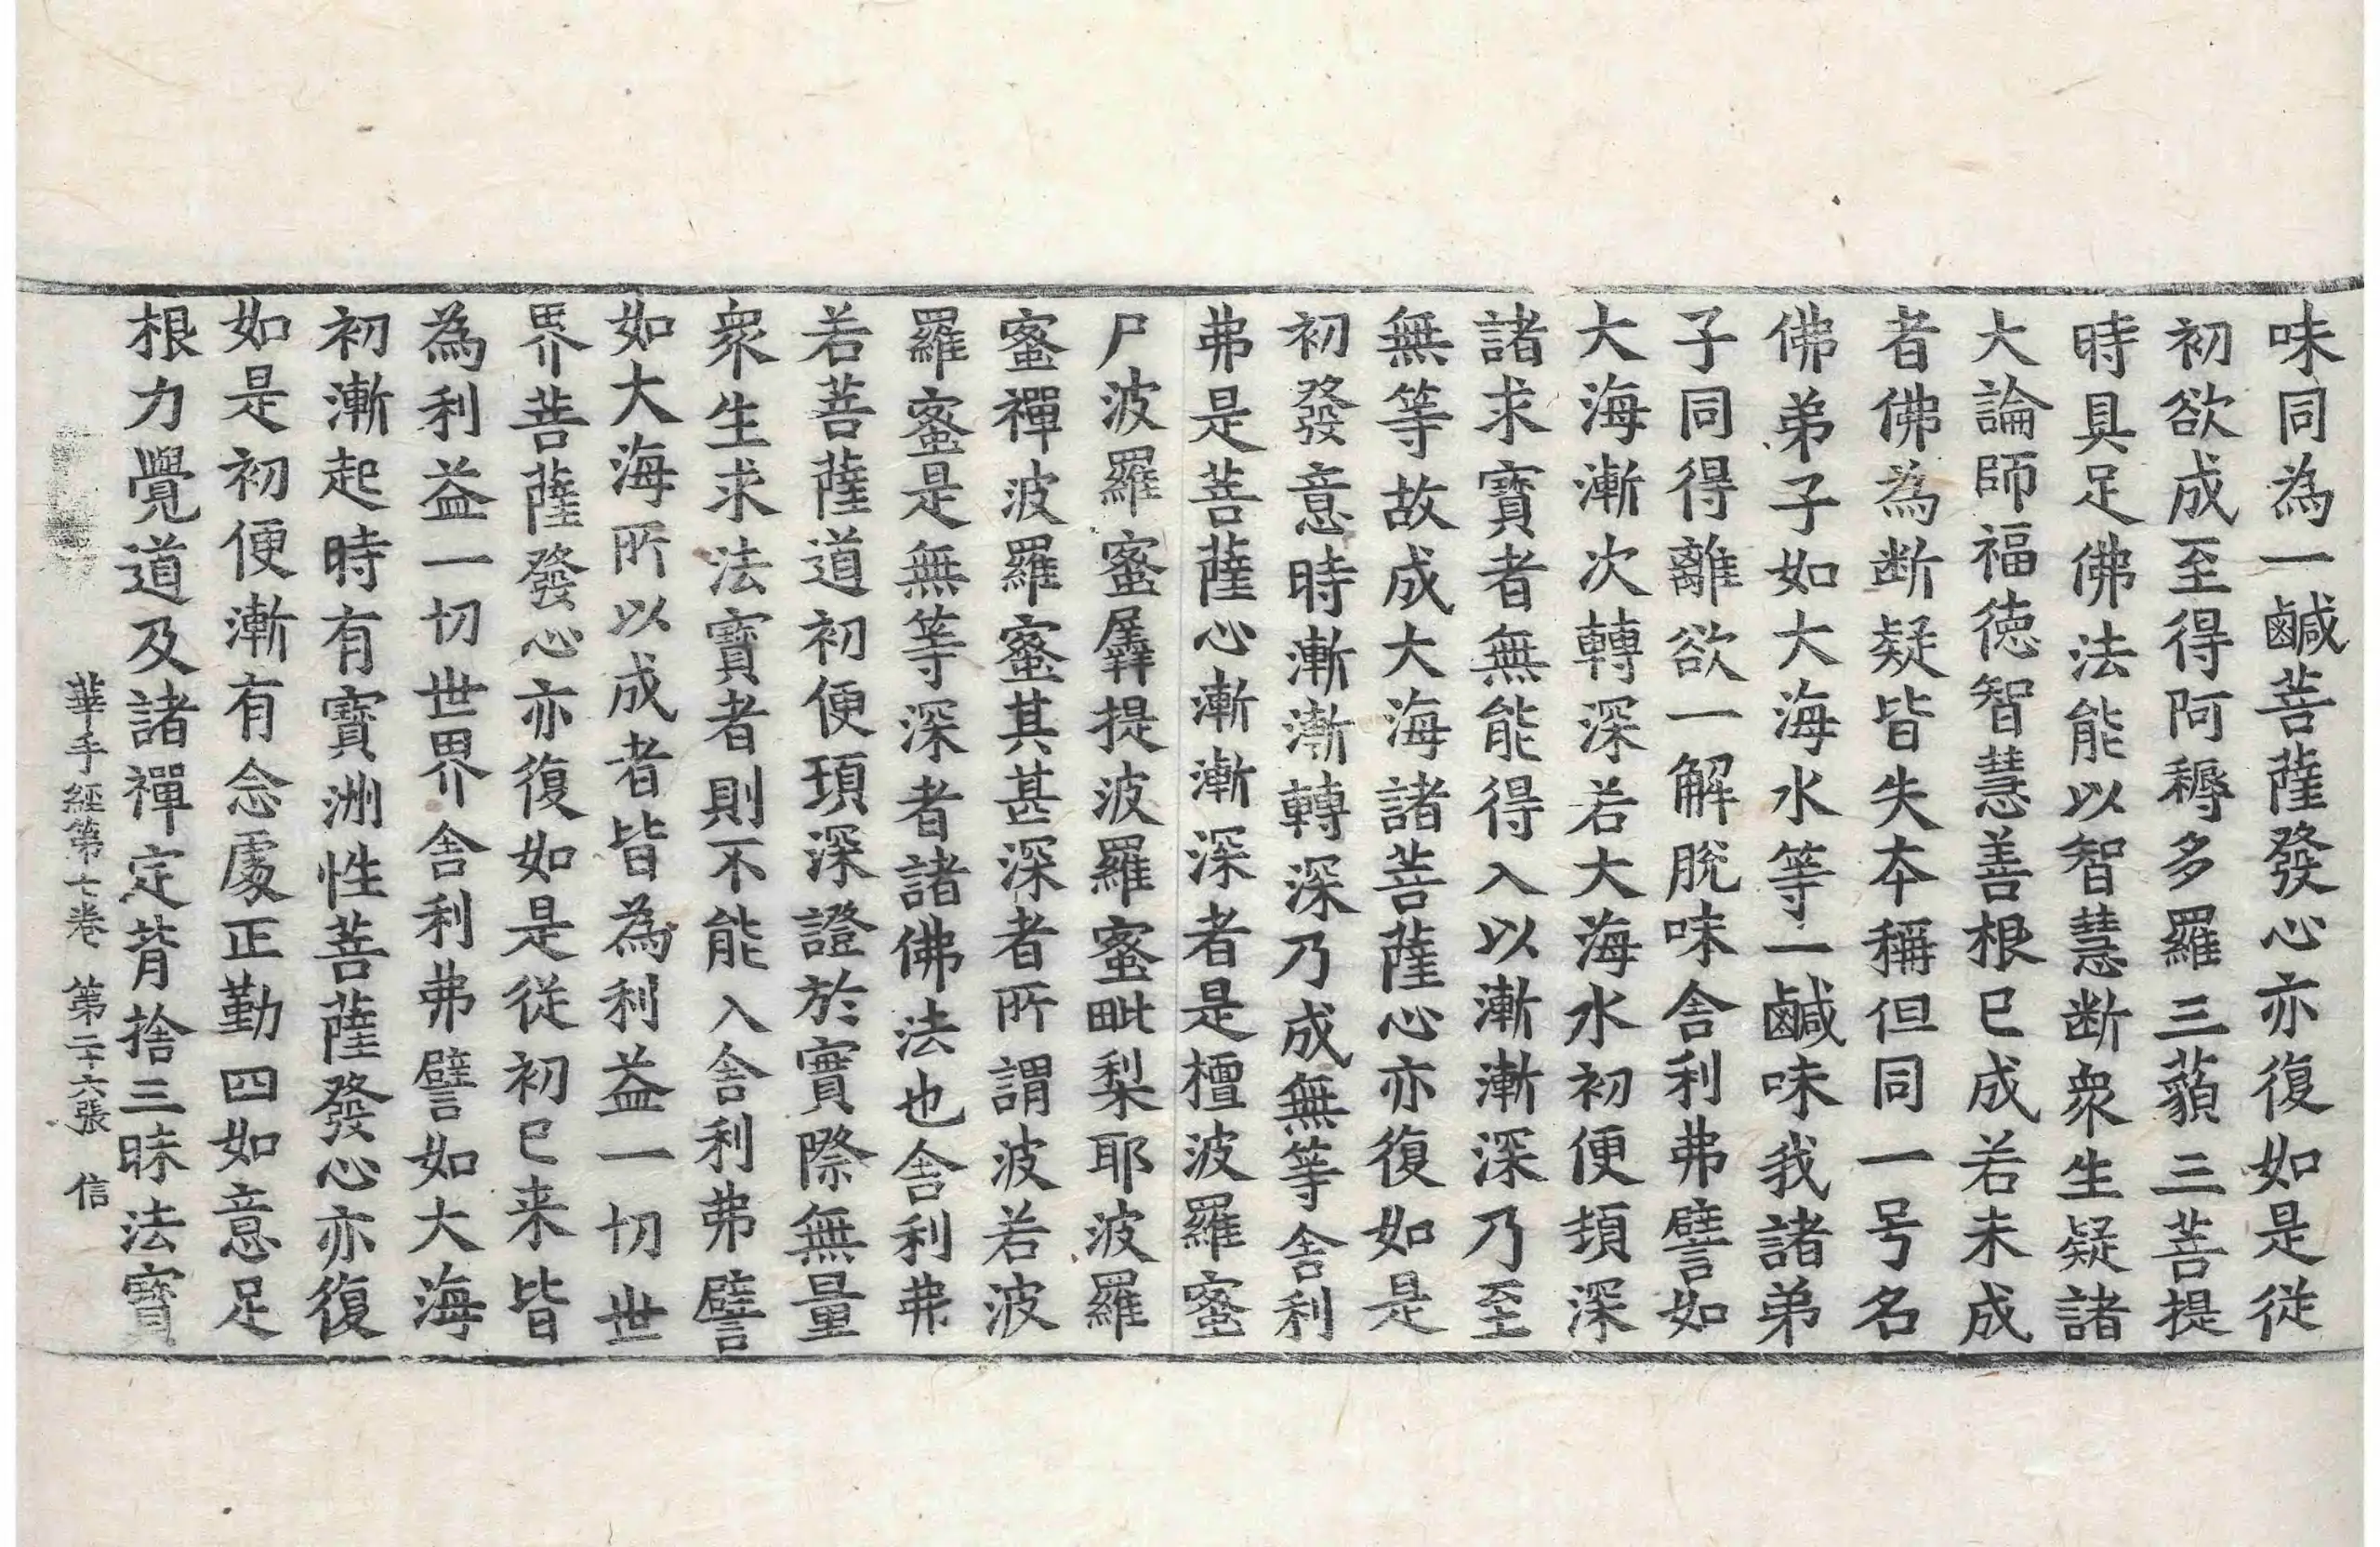 味同為一鹹菩薩發心亦復如是従
初欲成至得阿耨多羅三藐三菩提
時具足佛法能以智慧断衆生疑諸
大論師福徳智慧善根已成若未成
者佛為断疑皆失夲稱但同一号名
佛弟子如大海水等一鹹味我諸弟
子同得離欲一解脫味舎利弗譬如
大海漸次轉深若大海水初便頓深
諸求寶者無能得入以漸漸深乃至
無等故成大海諸菩薩心亦復如是
初發意時漸漸轉深乃成無等舎利
弗是菩薩心漸漸深者是檀波羅蜜
尸波羅蜜羼提波羅蜜毗梨耶波羅
蜜禪波羅蜜其甚深者所謂波若波
羅蜜是無等深者諸佛法也舎利弗
若菩薩道初便頓深證於實際無量
衆生求法寶者則不能入舎利弗譬
如大海所以成者皆為利益一切世
界菩薩發心亦復如是従初已来皆
為利益一切世界舎利弗譬如大海
初漸起時有寶洲性菩薩發心亦復
如是初便漸有念處正勤四如意足
根力覺道及諸禪定背捨三昧法寶
華手經第七卷 第二十六張 信